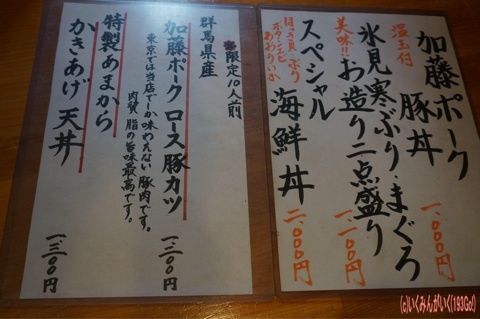 加藤ポーク
温玉付 豚丼 一、000円
氷見寒ぶり・まぐろ
美味!! お造り二点盛り 一、一00円
スペシャル
海鮮丼 二、000円
ほっき貝 ぶり
ボタンエビ
あおりいか
限定10人前
群馬県産
加藤ポーク ロース豚カツ 一、三00円
東京では当店でしか味わえない 豚肉です。
肉質 脂の旨味最高です。
特製あまから
かきあげ 天丼 一、三00円
(c)いくみんがいく(193Go!)